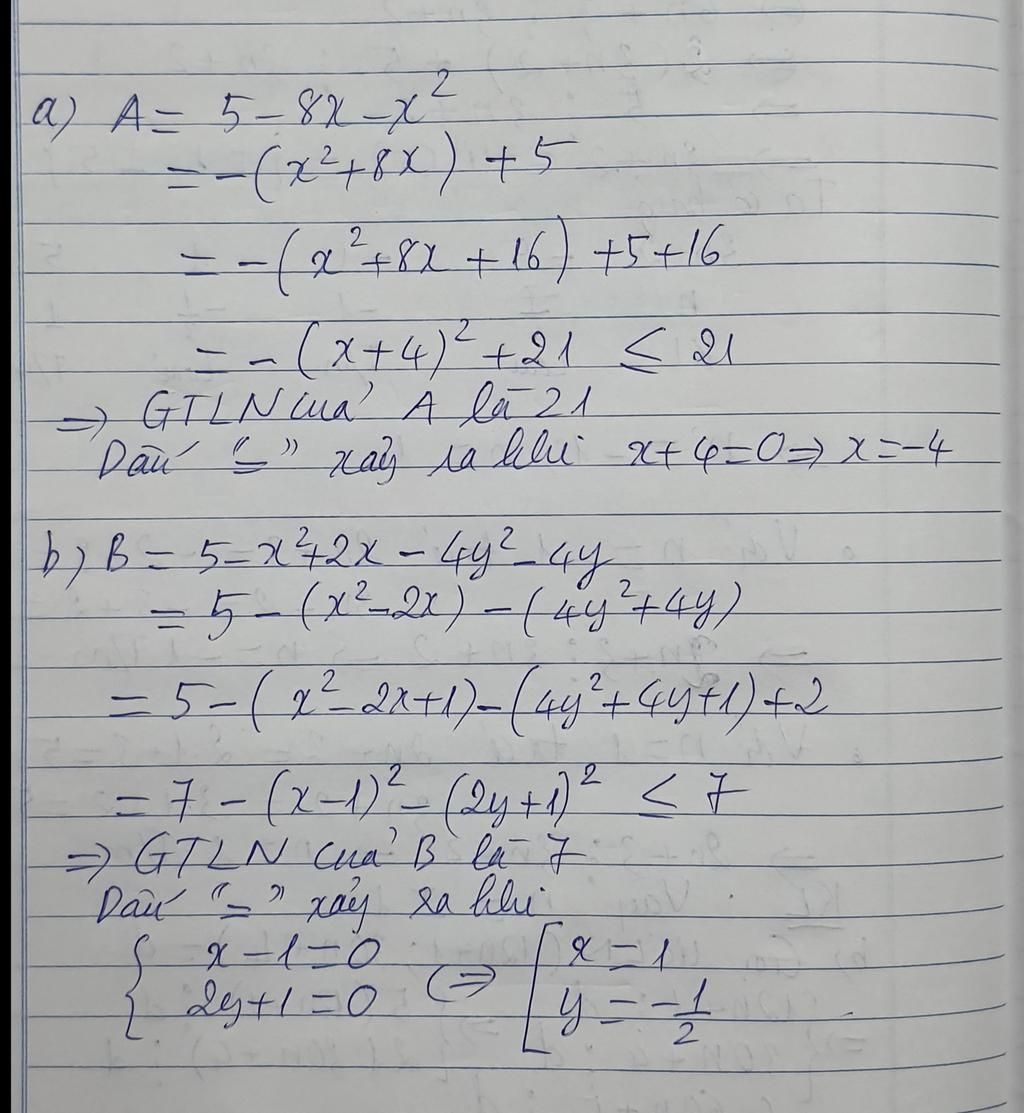 a) A = 5 - 8x - x²
= -(x² + 8x) + 5
= -(x² + 8x + 16) + 5 + 16
= -(x + 4)² + 21 ≤ 21
=> GTLN của A là 21
Dấu "=" xảy ra khi x + 4 = 0 => x = -4
b) B = 5 - x² + 2x - 4y² - 4y
= 5 - (x² - 2x) - (4y² + 4y)
= 5 - (x² - 2x + 1) - (4y² + 4y + 1) + 2
= 7 - (x - 1)² - (2y + 1)² ≤ 7
=> GTLN của B là 7
Dấu "=" xảy ra khi
{ x - 1 = 0 <=> [ x = 1
2y + 1 = 0 y = -1/2